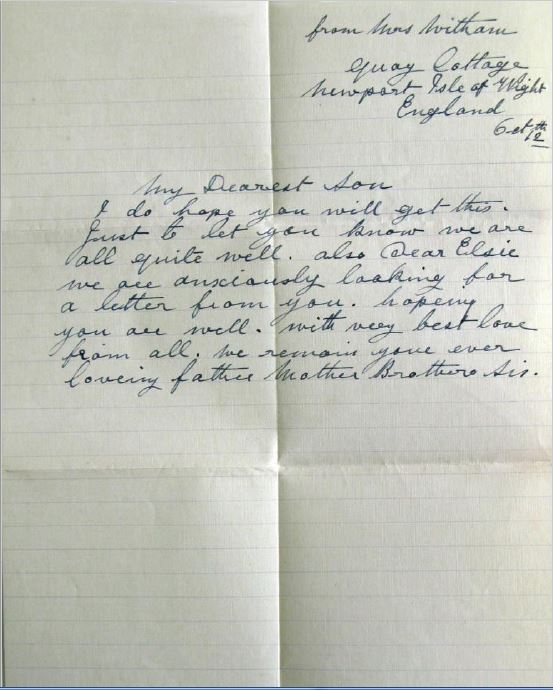 from Mrs Witham
Quay Cottage
Newport Isle of Wight
England
Oct 12th
My Dearest Son
I do hope you will get this.
Just to let you know we are
all quite well. also Dear Elsie
we are anxiously looking for
a letter from you. hopeing
you are well. with very best love
from all. we remain your ever
loveing father Mother Brothers Sis.